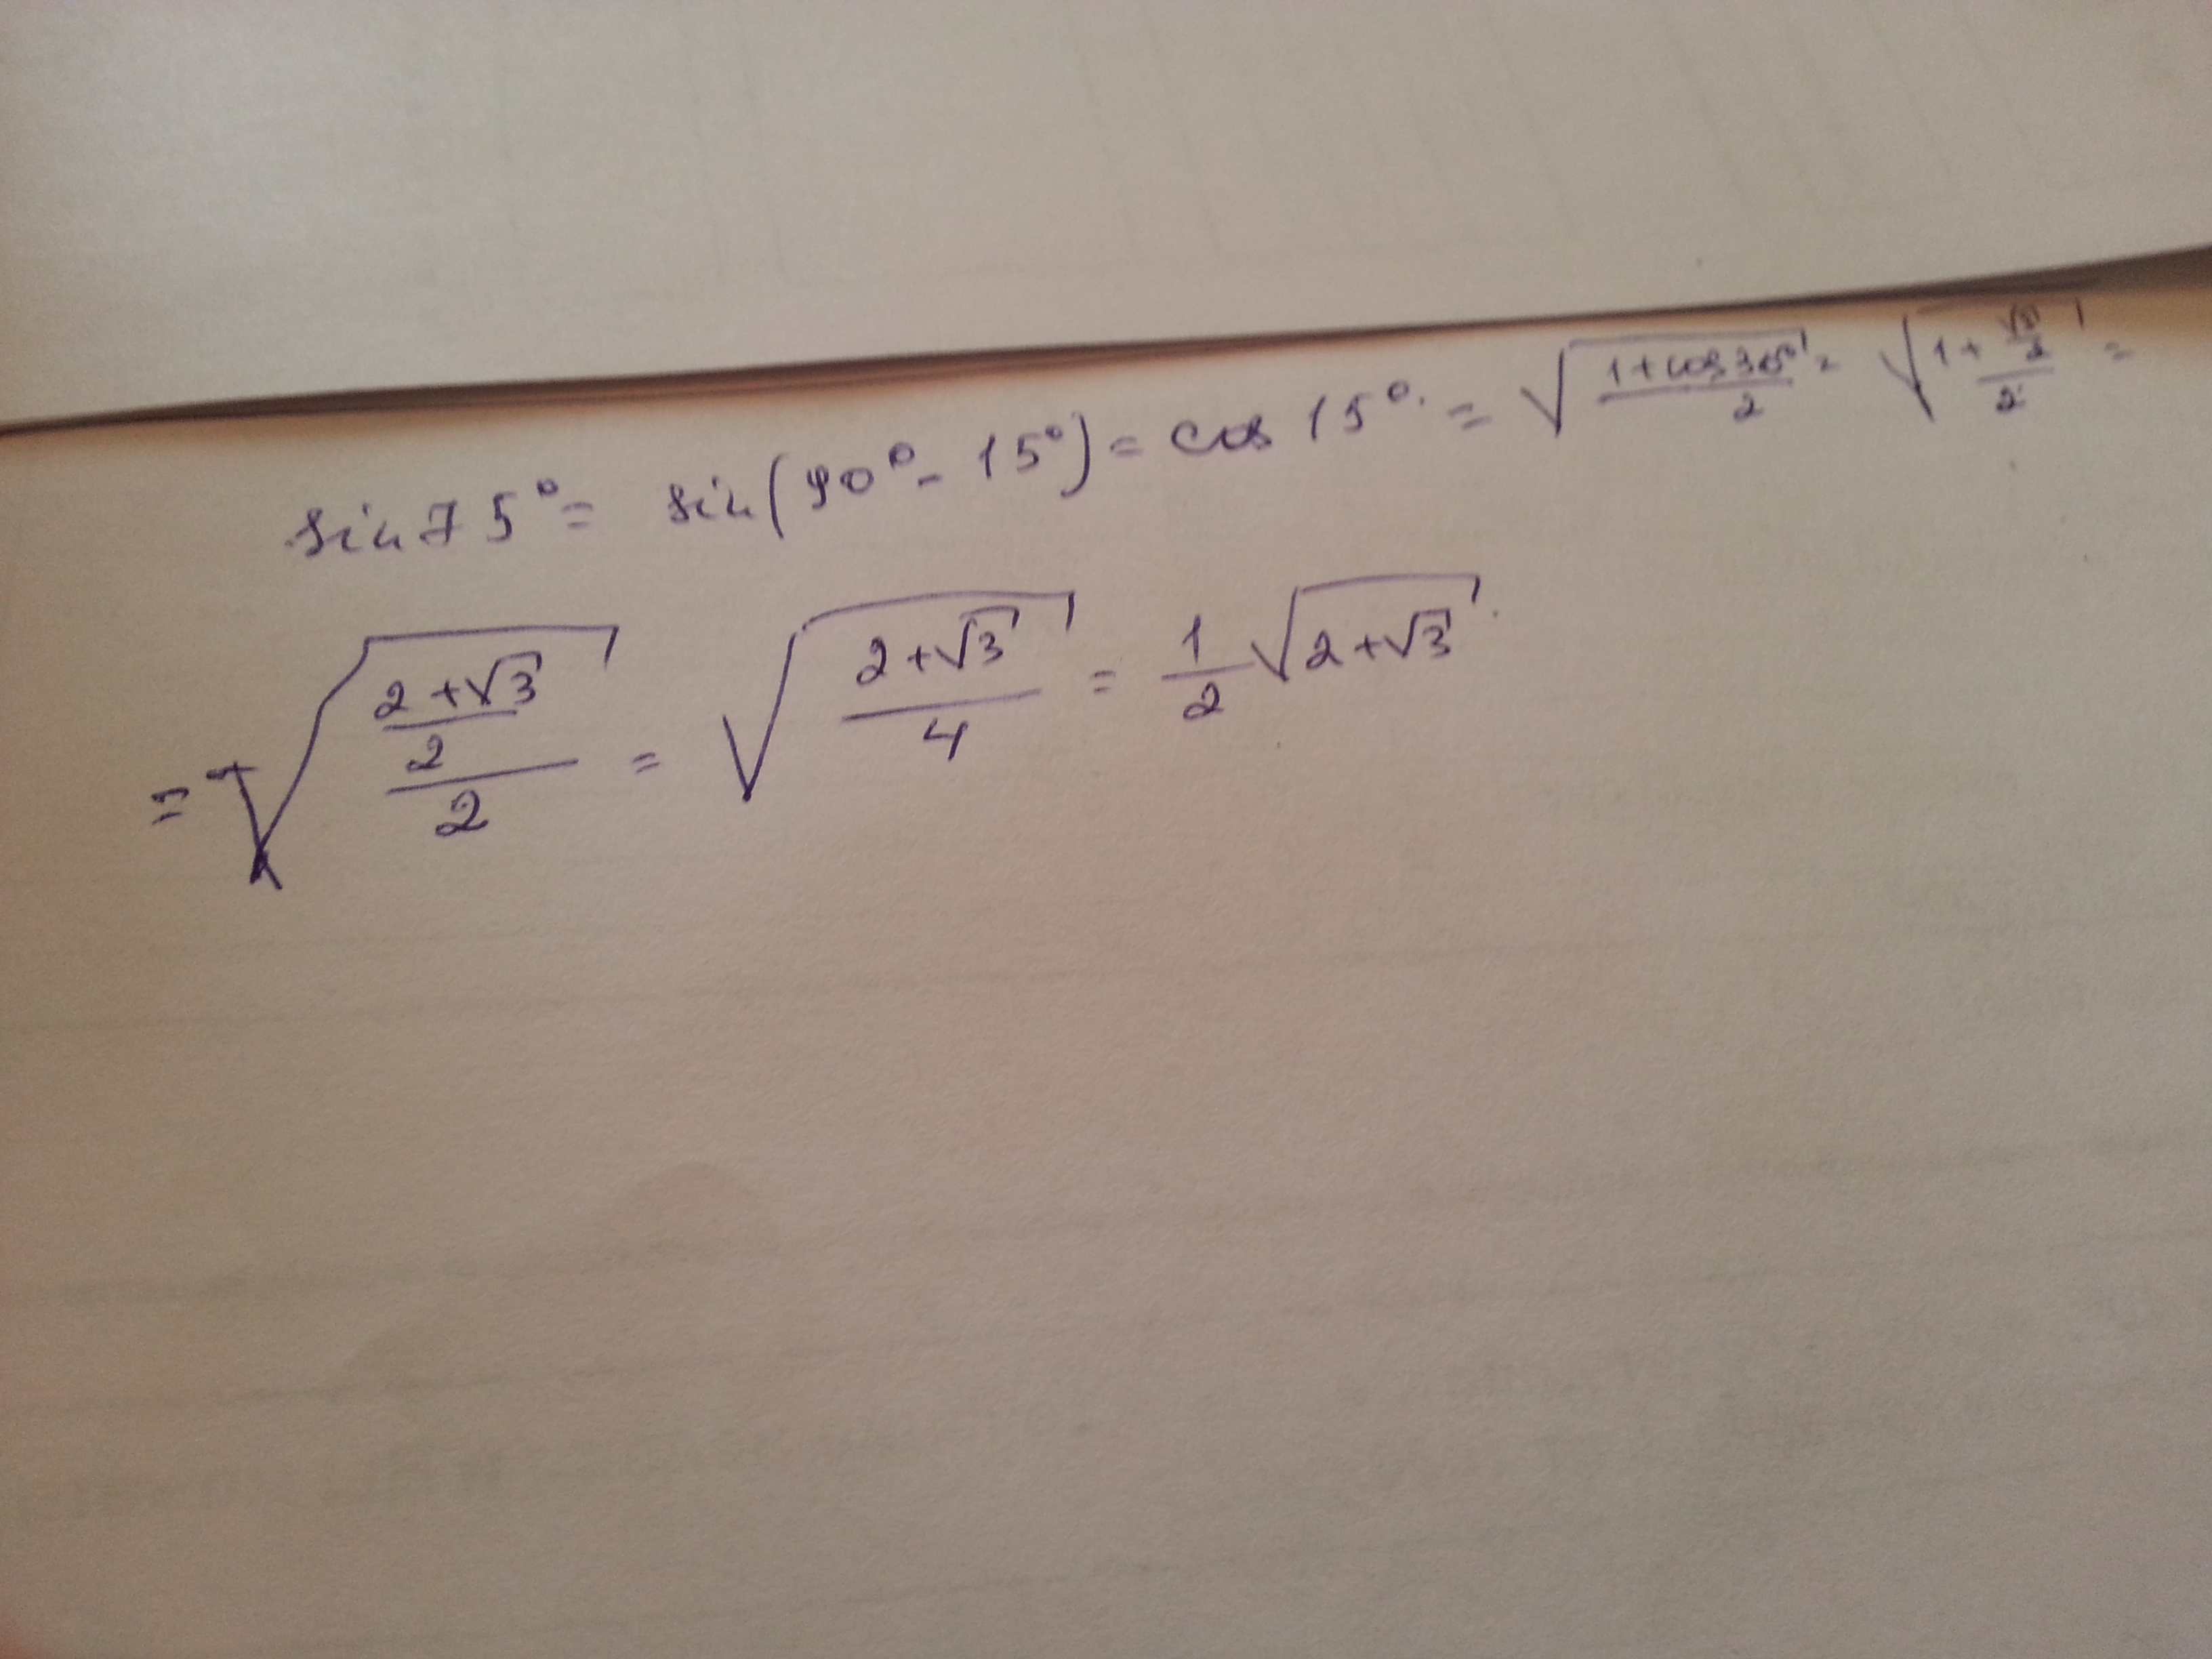 sin 75° = sin(90° - 15°) = cos 15° = √((1+cos 30°)/2) = √((1+√3/2)/2) =
= √(((2+√3)/2)/2) = √((2+√3)/4) = 1/2 √(2+√3)